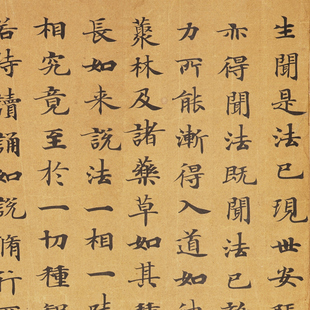 生聞是法已現世安
亦得聞法既聞法已
力所能漸得入道如
藂林及諸藥草如其種
長如来說法一相一味
相究竟至於一切種
若持讀誦如說脩行